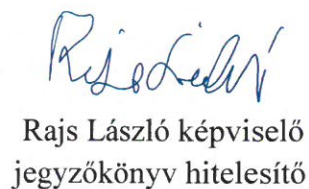 Rajs László képviselő
jegyzőkönyv hitelesítő